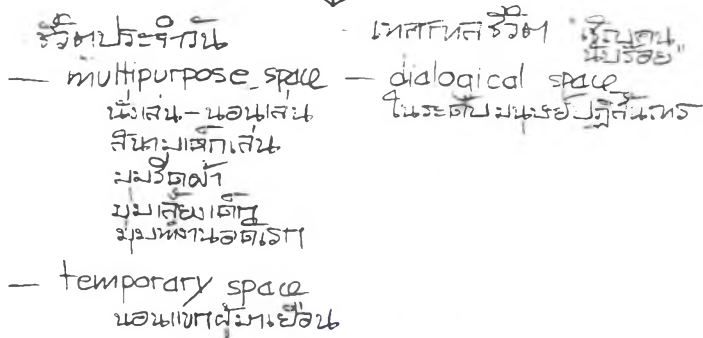 ชีวิตประจำวัน
— multipurpose space
นั่งเล่น-นอนเล่น
สนามเด็กเล่น
มุมรีดผ้า
มุมเลี้ยงเด็ก
มุมทำงานอดิเรก
— temporary space
นอนแขกผู้มาเยือน
เทศกาลชีวิต "เชิญคนนับร้อย"
— dialogical space
ในระดับมนุษย์ปฏิสันถาร